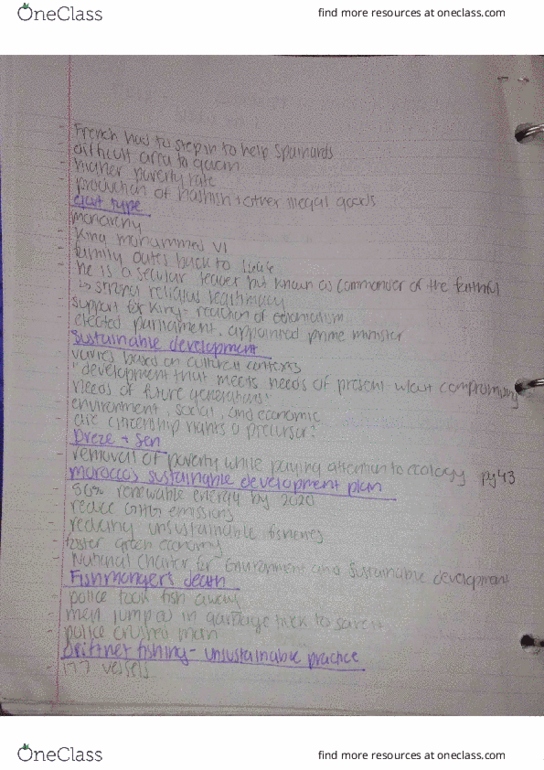 OneClass
find more resources at oneclass.com
- French had to step in to help Spaniards
- difficult area to
- higher poverty rate
- production of hashish + other illegal goods
type
- monarchy
- King Mohammed VI
- family dates back to
- he is a secular leader but known as Commander of the faithful
↳ strong religious legitimacy
- support for King = reaction of colonialism
- elected parliament, appointed prime minister
Sustainable development
- varies based on cultural contexts
- "development that meets needs of present w/out compromising
needs of future generations"
- environment, social, and economic
- are citizenship rights a precursor?
Dreze + Sen
- removal of poverty while paying attention to ecology pg 43
morocco's sustainable development plan
- renewable energy by 2020
- reduce emissions
- unsustainable fisheries
- foster green economy
- National Charter for Environment and Sustainable development
Fishmonger's death
- police took fish away
- man jumped in garbage truck to save it
- police crushed man
Driftnet fishing - unsustainable practice
- 177 vessels
OneClass
find more resources at oneclass.com